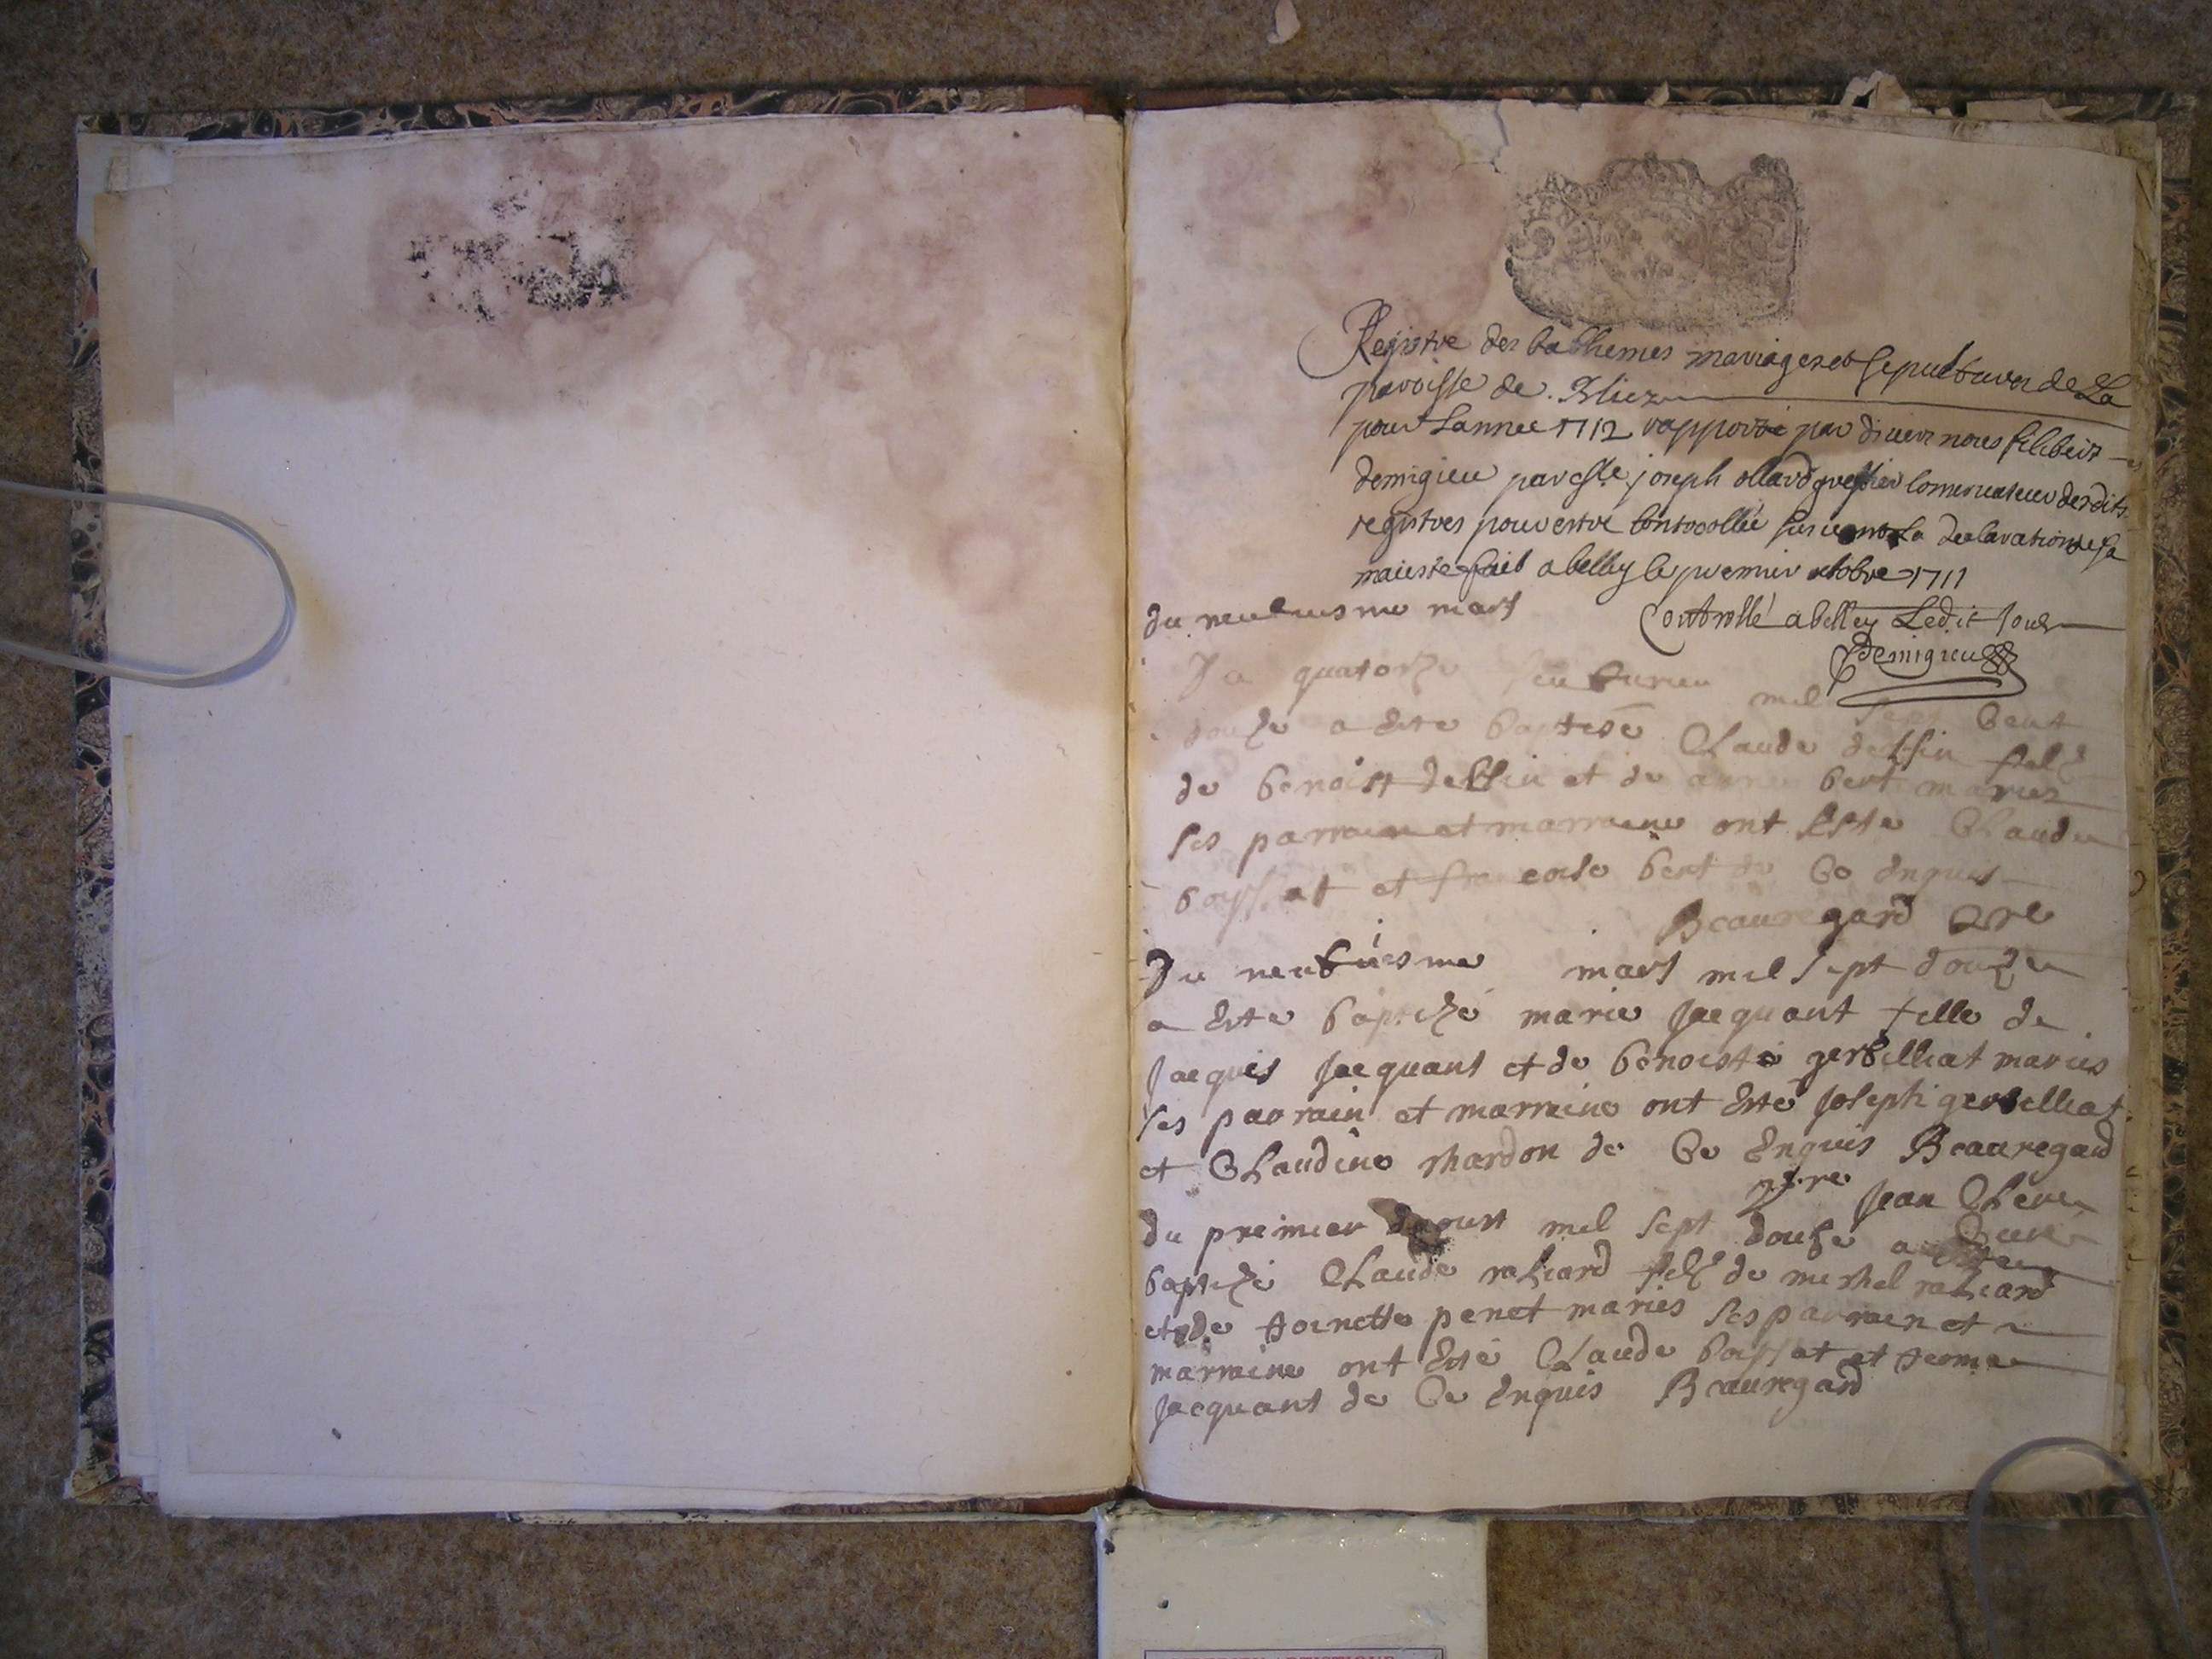 Registre des bathemes mariages et sepultures de La
paroisse de
pour Lannee 1712 rapporté par divers nous filibert
demigieu par Mre joseph ollard greffier conservateur desdits
registres pour estre controollé suivant La declaration de sa
maiesté fait a belley le premier octobre 1711
du neufviesme mars
Controllé a belley Ledit Jour
demigieu
Du quatorze feuburier mil sept Cent
douze a Este baptisé Claude
de benoist et de anne bert maries
ses parrain et marraine ont Este Claude
boissat et francoise bert de Ce Enquis
Beauregard Cure
Du neufuiesme mars mil sept douze
a Este baptizé marie Jacquant fille de
Jacques Jacquant et de benoiste gerbelliat maries
ses parrain et marraine ont Esté Joseph gerbelliat
et Claudine chardon de Ce Enquis Beauregard
Jean
du premier daoust mil sept douze a Este
baptizé Claude filz de michel
et de toinette penet maries ses parrain et
marraine ont Esté Claude boissat et
Jacquant de Ce Enquis Beauregard